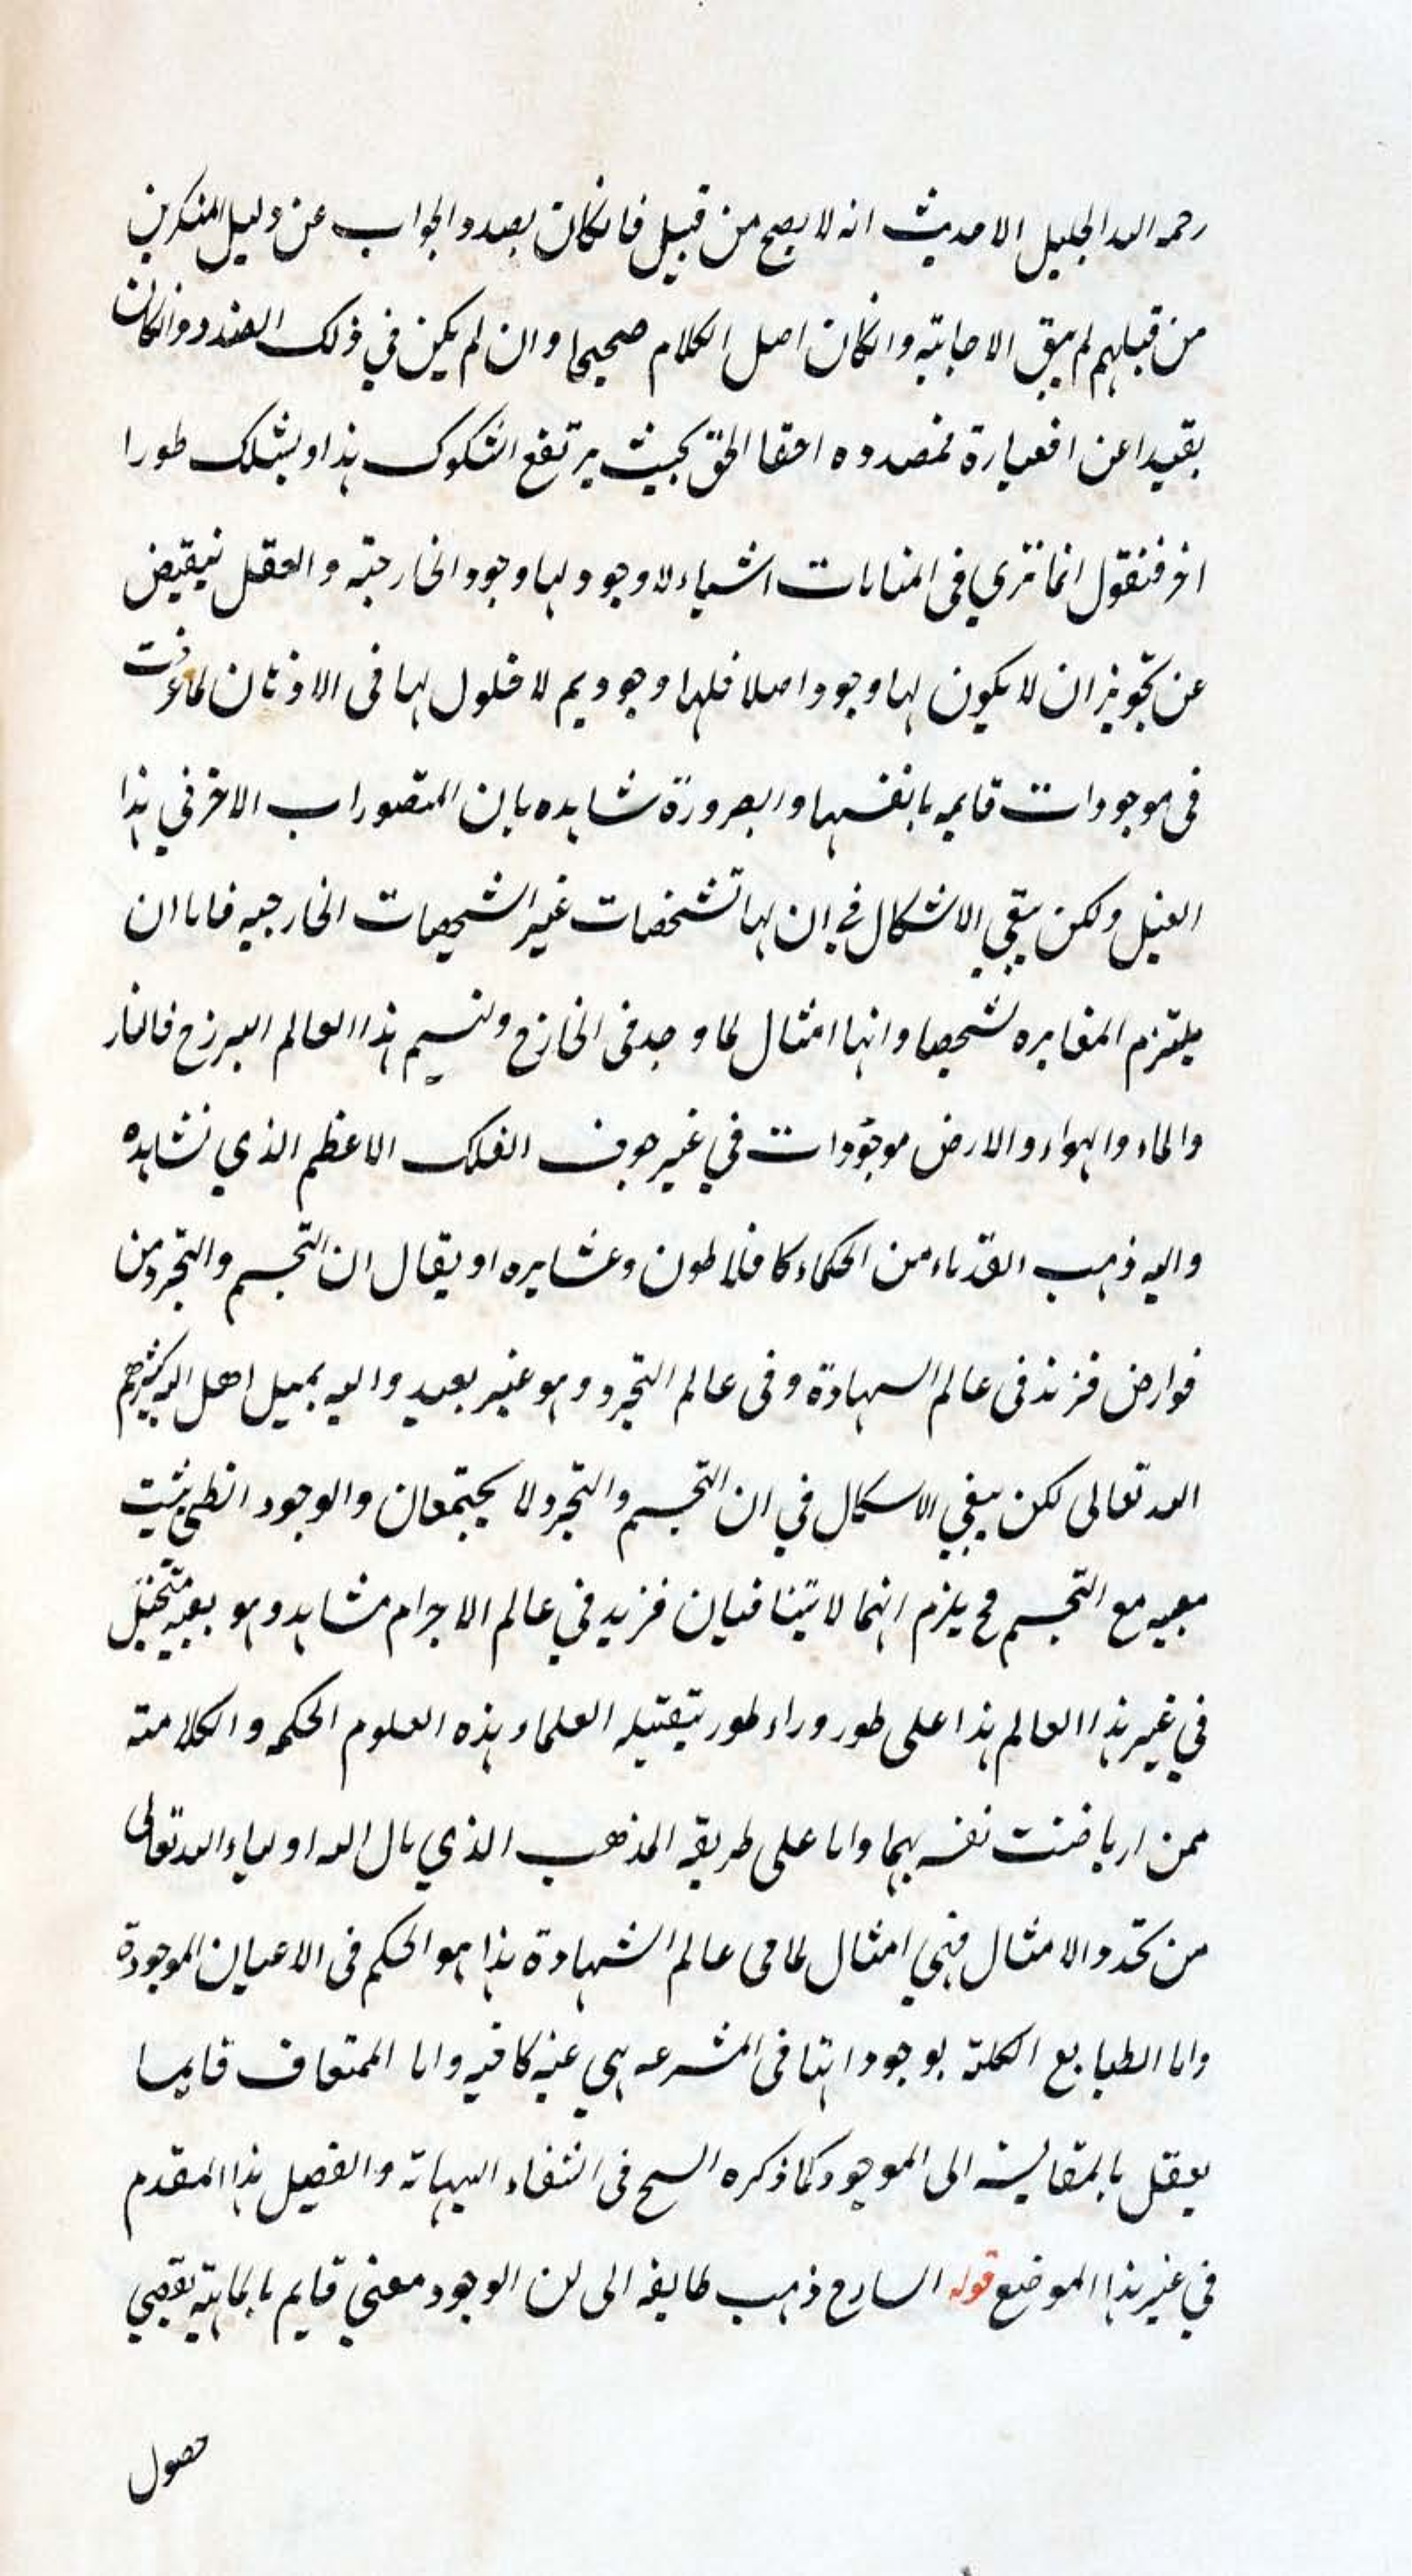 رحمه الله الجليل الا مدیث انه لا یصح من قبیل فانکان بصدد الجواب عن دلیل المنکرین
من قبلهم لم یبق الا جابته وانکان اصل الکلام صحیحا وان لم یکن فی ذلک الصدد وانکان
بقیدا عن افعبارة مصدوه احقا الحق بحیث یرتفع الشکوک هذا ویسلک طورا
اخر فنقول انما نری فی المنامات اشیاء لا وجود لها وجود الخارجیة والعقل ینقبض
عن تجویز ان لا یکون لها وجود اصلا فلها وجود یم لا حلول لها فی الاذهان لما عرفت
فی موجودات قایمه بانفسها والضرورة شاهده بان المتصوراب الاخر فی هذا
القبیل ولکن یبقی الاشکال فی ان لها تشخصات غیر الشخصیات الخارجیه فاما ان
یلتزم المغایره تشخصا وانها امثال لما وجد فی الخارج ونسیم هذا العالم البرزخ فالنار
والماء والهواء والارض موجودات فی غیر جوف الفلک الاعظم الذی نشاهده
والیه ذهب القدماء من الحکماء کافلاطون وعشایره او یقال ان التجسم والتجرد من
عوارض فزید فی عالم السهادة وفی عالم التجرد وهو غیر بعید والیه یمیل اهل الله کثرهم
الله تعالی لکن یبقی الاسکال فی ان التجسم والتجرد لا یجتمعان والوجود الظلی یثبت
معیه مع التجسم فح یلزم انهما لا یتنافیان فزید فی عالم الاجرام مشاهد وهو بعینه متخیل
فی غیر هذا العالم هذا علی طور وراء طور یتقبله العلماء بهذه العلوم الحکمه والکلامته
ممن ارباضت نفسه بهما واما علی طریقه المذهب الذی مال اله اولیاء الله تعالی
من تجدد الامثال فهی امثال لما فی عالم الشهادة هذا هو الحکم فی الاعیان الموجودة
واما الطبایع الکلیة بوجوداتها فی المشرعه هی عنیه کافیه واما الممتعاف فانها
یعقل بالمقالیسه الی الموجود کما ذکره السح فی الشفاء الهیاته والفصیل هذا المقدم
فی غیر هذا الموضع قوله السارح ذهب طایفه الی ان الوجود معنی قایم بالماهیة یقضی
حصول